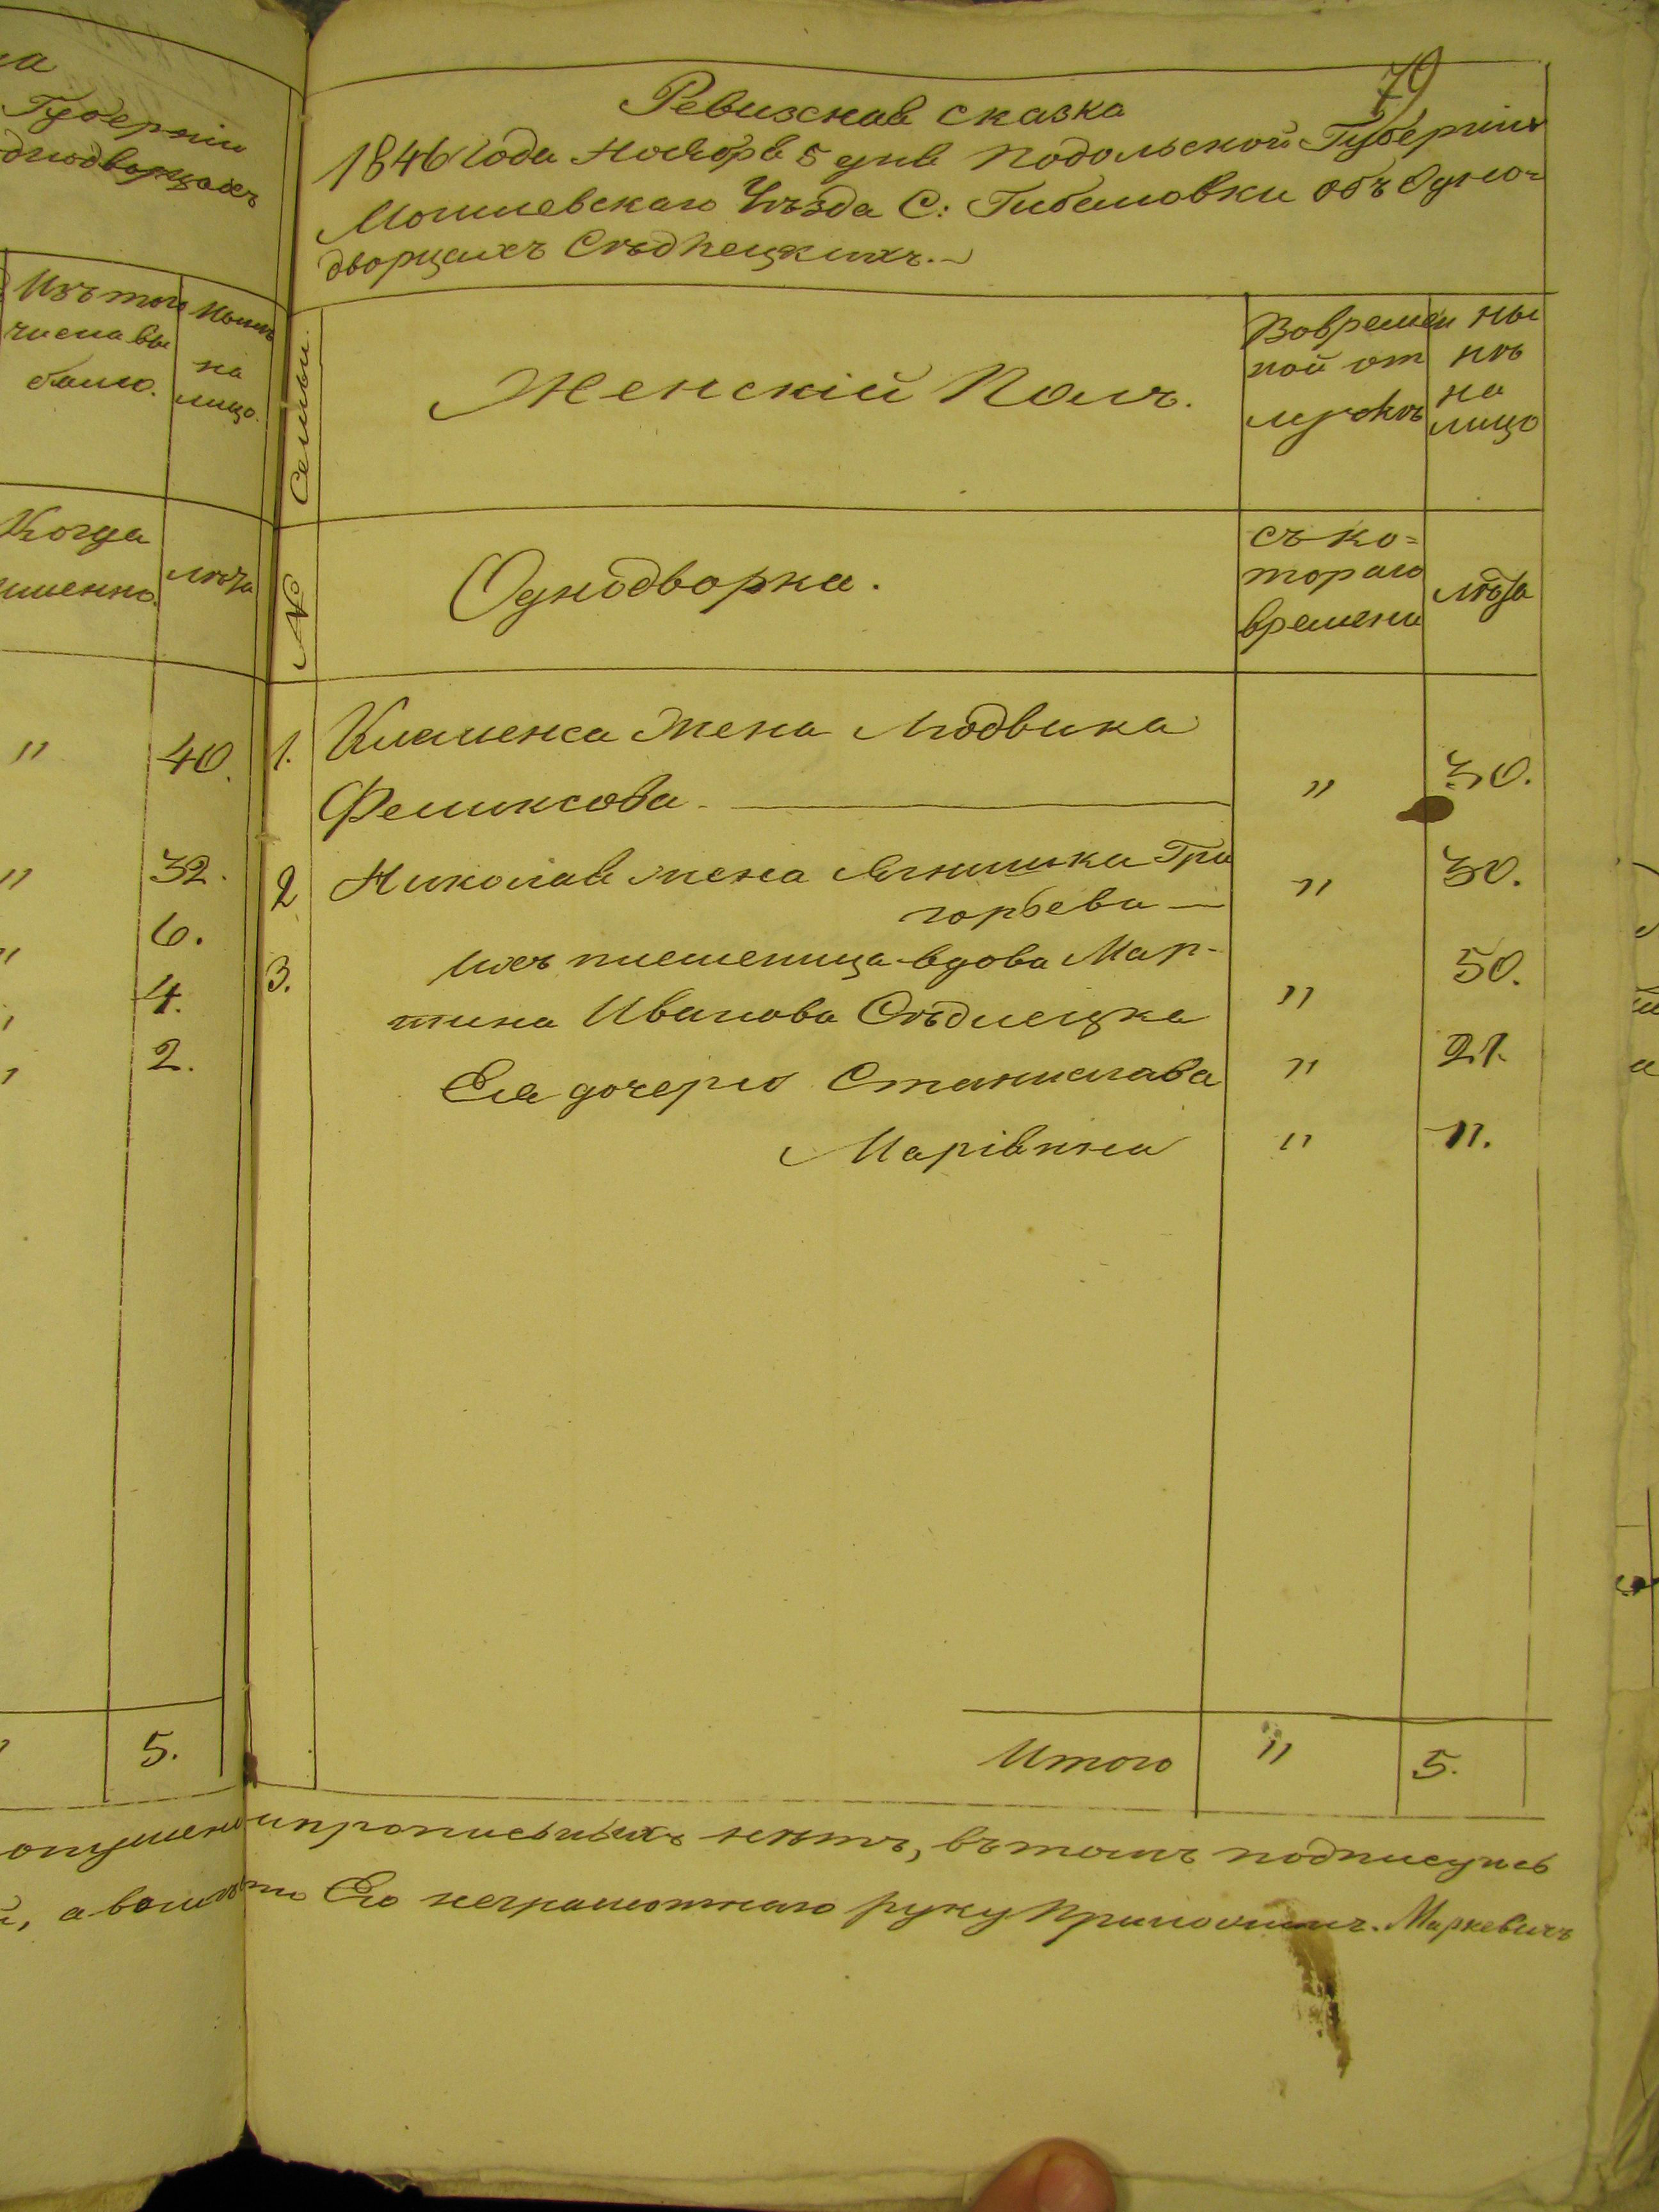 на
Губерніи
днодворцахъ
Изъ того
числа вы
было.
Нынѣ
на
лицо.
Когда
именно.
лѣта
" 40.
" 32.
" 6.
" 4.
" 2.
" 5.
79
Ревизская сказка
1846 Года Ноября 5 дня Подольской Губерніи
Могилевскаго Уѣзда С: Гибаловки объ Одно=
дворцахъ Сѣдлецкихъ.
№ Семьи.
Женскій Полъ.
Вовремен
ной от
лучкѣ
ны
нѣ
на
лицо
Однодворка.
съ ко=
тораго
времени
лѣта
1. Клеменса Жена Людвика
Феликсова " 30.
2 Николая жена Ягнишка Гри
горьева " 30.
3. Ихъ племеница вдова Мар-
тина Иванова Сѣдлецка " 50.
Ея дочерю Станислава " 21.
Маріянна " 11.
Итого " 5.
опущено и прописныхъ нѣтъ, въ томъ подписуюсь
й, а вомѣсто Его неграмотнаго руку Приложилъ. Маркевичъ